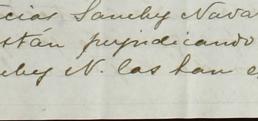 cias Sanchz Nava
están perjudicando
chez N. las han e